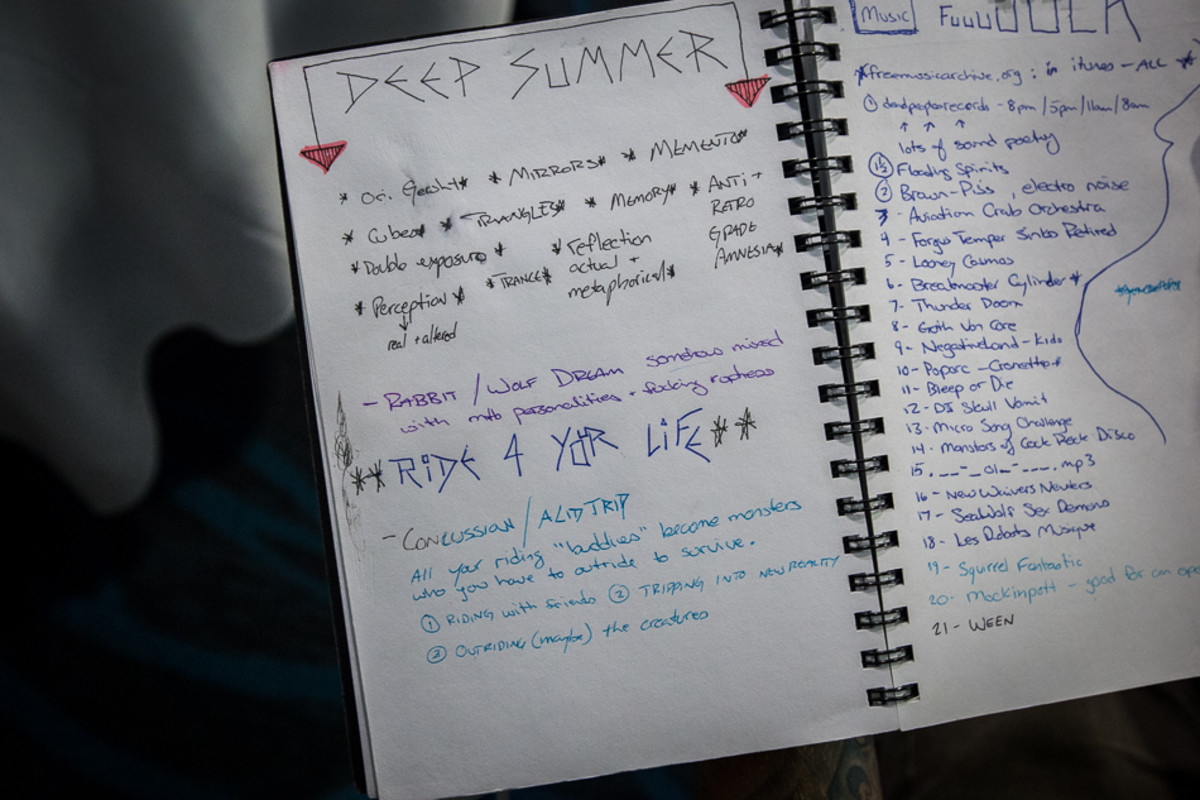 DEEP SUMMER
* Ori Gersht * * MIRRORS * * MEMENTO *
* Cubes * * TRIANGLES * * MEMORY * * ANTI +
RETRO
GRADE
AMNESIA *
* Double exposure * * reflection
actual +
metaphorical *
* Perception * * TRANCE *
real + altered
- RABBIT / WOLF DREAM somehow mixed
with mtb personalities + fucking
** RIDE 4 YOR LIFE **
- CONCUSSION / ACID TRIP
All your riding "buddies" become monsters
who you have to outride to survive.
① RIDING with friends ② TRIPPING INTO NEW REALITY
③ OUTRIDING (maybe) the creatures
Music
*freemusicarchive.org : in itunes - ALL *
① deadpeoplerecords - 8pm / 5pm / 11am / 8am
lots of sound poetry
1½ Floading Spirits
② Brown-Piss, electro noise
3 - Aviation Crab Orchestra
4 - Temper
5 - Looney
6 - Breakmaster Cylinder *
7 - Thunder Doom
8 - Goth Von Core
9 - Negativeland - Kids
10 -
11 - Bleep or Die
12 - DJ Skull Vomit
13 - Micro Song Challenge
14 - Monsters of Cock Rock Disco
15. .mp3
16 - New Waivers
17 - SeaWolf Sex Demons
18 - Les Robots Musique
19 - Squirrel Fantastic
20 - Mockinpott - good for an
21 - WEEN